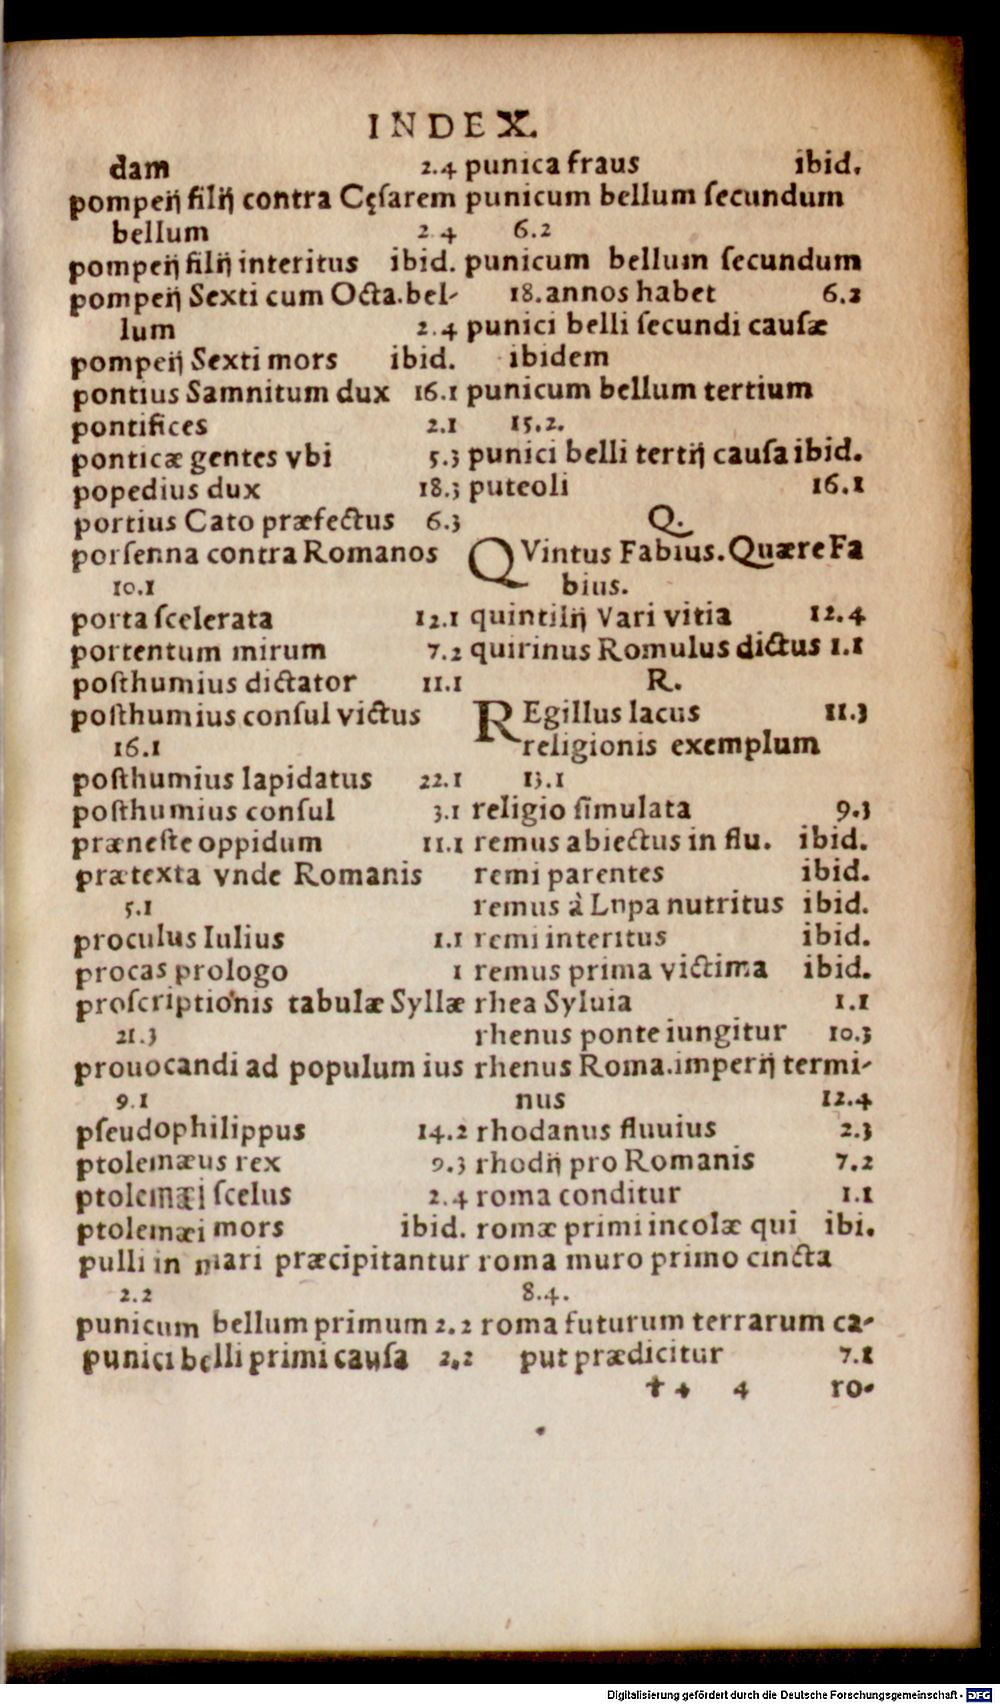 INDEX.
dam 2.4
pompeij filij contra Cęsarem
bellum 2 4
pompeij filij interitus ibid.
pompeij Sexti cum Octa.bel-
lum 2.4
pompeij Sexti mors ibid.
pontius Samnitum dux 16.1
pontifices 2.1
ponticæ gentes vbi 5.3
popedius dux 18.3
portius Cato præfectus 6.3
porſenna contra Romanos
10.1
porta ſcelerata 12.1
portentum mirum 7.2
poſthumius dictator 11.1
poſthumius conſul victus
16.1
poſthumius lapidatus 22.1
poſthumius conſul 3.1
præneſte oppidum 11.1
prætexta vnde Romanis
5.1
proculus Iulius 1.1
procas prologo 1
proſcriptionis tabulæ Syllæ
21.3
prouocandi ad populum ius
9.1
pſeudophilippus 14.2
ptolemæus rex 9.3
ptolemæi ſcelus 2.4
ptolemæi mors ibid.
pulli in mari præcipitantur
2.2
punicum bellum primum 2.2
punici belli primi cauſa 2.2
punica fraus ibid.
punicum bellum ſecundum
6.2
punicum bellum ſecundum
18.annos habet 6.2
punici belli ſecundi cauſæ
ibidem
punicum bellum tertium
15.2.
punici belli tertij cauſa ibid.
puteoli 16.1
Q.
QVintus Fabius. Quære Fa
bius.
quintilij Vari vitia 12.4
quirinus Romulus dictus 1.1
R.
REgillus lacus 11.3
religionis exemplum
13.1
religio ſimulata 9.3
remus abiectus in flu. ibid.
remi parentes ibid.
remus à Lnpa nutritus ibid.
remi interitus ibid.
remus prima victima ibid.
rhea Syluia 1.1
rhenus ponte iungitur 10.3
rhenus Roma.imperij termi-
nus 12.4
rhodanus fluuius 2.3
rhodij pro Romanis 7.2
roma conditur 1.1
romæ primi incolæ qui ibi.
roma muro primo cincta
8.4.
roma futurum terrarum ca-
put prædicitur 7.1
✝ 4 4 ro-
Digitalisierung gefördert durch die Deutsche Forschungsgemeinschaft - DFG